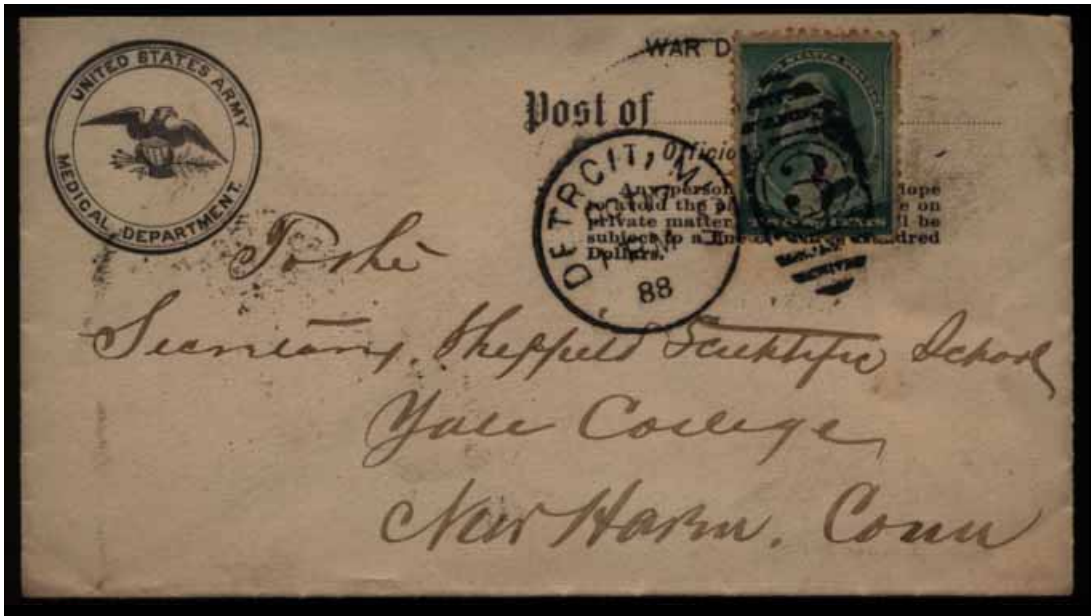 UNITED STATES ARMY
MEDICAL DEPARTMENT.
WAR D
Post of
Officia
Any person
to avoid the
private matter
subject to a fine
Dollars.
lope
e on
ll be
dred
DETROIT, MI
88
To the
Secretary, Sheffield Scientific School
Yale College,
New Haven. Conn